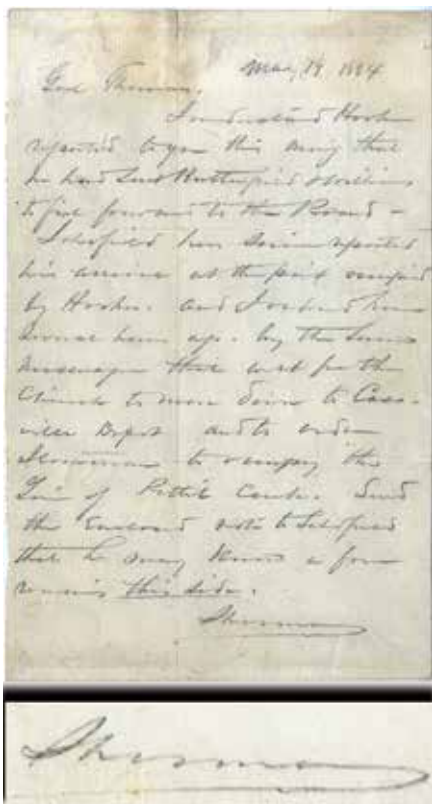 May 19, 1864
Genl Thomas,
I understand Hooker
reported to you this morng that
he had sent Butterfield & Williams
to feel forward to the Road –
Schofield has since reported
his arrival at the point occupied
by Hooker. and I
by the same
messenger that
to move down to Cass-
ville Depot and to order
to occupy the
Line of Pettit Creek. Send
the Enclosed note to Schofield
that he may Know a force
remains this side.
Sherman
Sherman